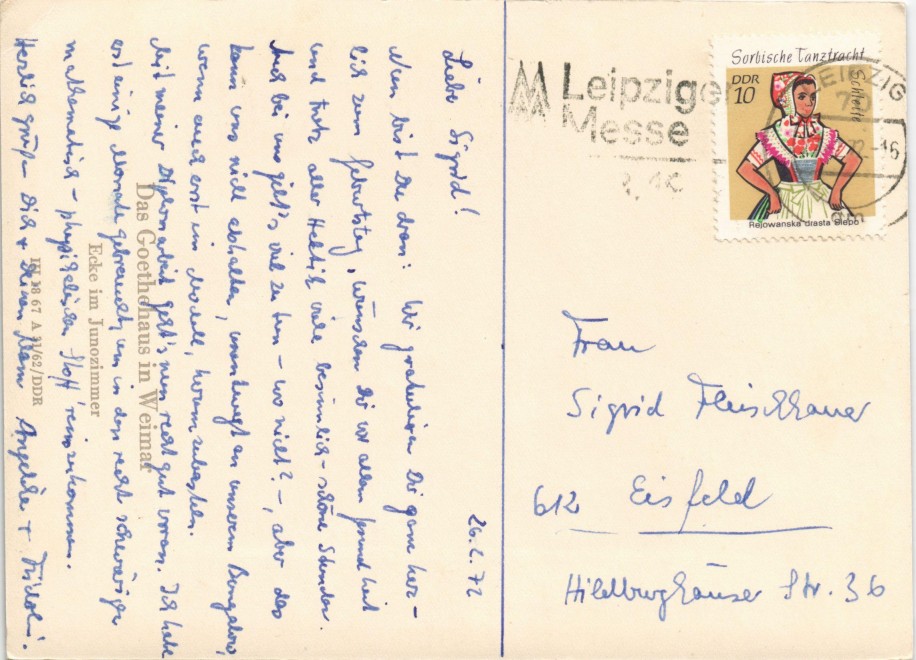 26.2.72
Liebe Sigrid!
Nun bist Du dran: Wir gratulieren Dir ganz herz-
lich zum Geburtstag, wünschen Dir vor allem Gesundheit
und trotz aller Hektik viele besinnlich-schöne Stunden.
Auch bei uns gibt's viel zu tun – wo nicht? –, aber das
kann uns nicht abhalten, unentwegt an unserem Bungalow,
wenn auch erst im Modell, herumzubasteln.
Mit meiner Diplomarbeit geht's nun recht gut voran. Ich habe
erst einige Monate gebraucht, um in den recht schwierigen
mathematisch-physikalischen Stoff reinzukommen.
Herzlich grüßen Dich + Deinen Mann Angelika +
Das Goethehaus in Weimar
Ecke im Junozimmer
67 A 91/62/DDR
Leipziger
Messe
LEIPZIG
Sorbische Tanztracht
Schleife
DDR
10
Rejowanska drasta Slepo
Frau
Sigrid Fleischhauer
612 Eisfeld
Hildburghäuser Str. 36